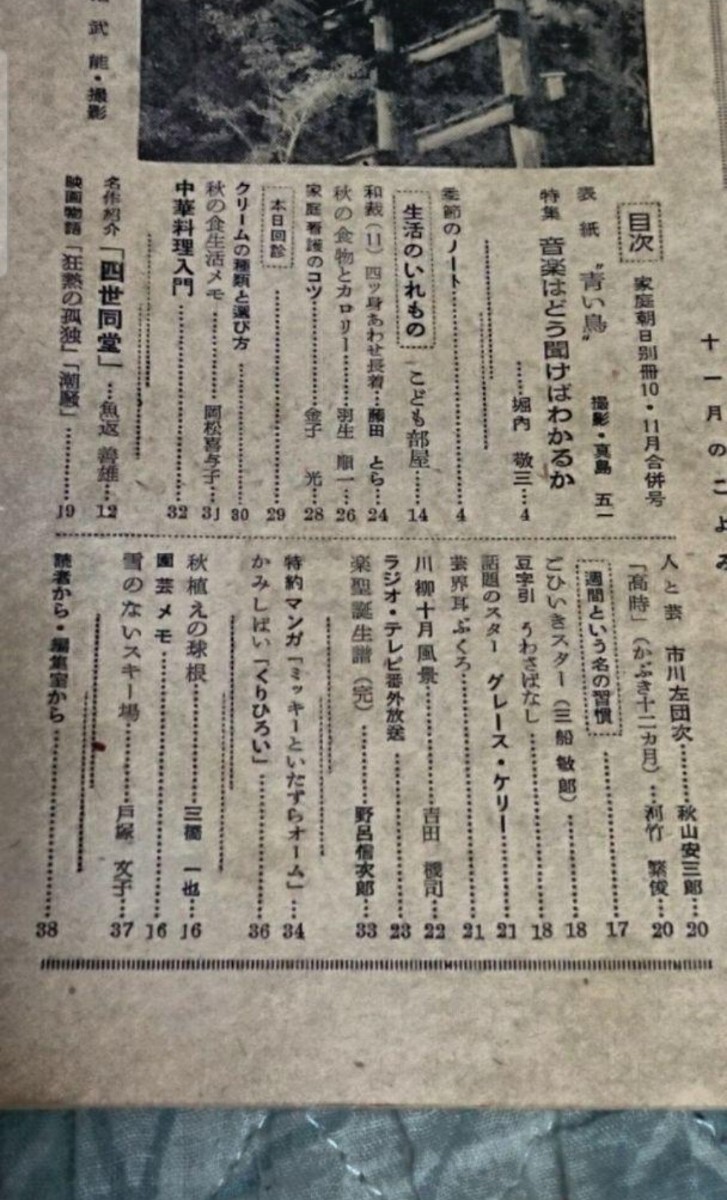 十一月のこよみ
武能・撮影
目次
家庭朝日別冊10・11月合併号
表紙 “青い鳥” 撮影・真島 五一
特集 音楽はどう聞けばわかるか
堀内 敬三…4
季節のノート…4
生活のいれもの
こども部屋…14
和裁(11) 四ッ身あわせ長着…藤田 とら…24
秋の食物とカロリー…羽生 順一…26
家庭看護のコツ…金子 光…28
本日回診
29
クリームの種類と選び方…30
秋の食生活メモ…岡松喜与子…31
中華料理入門…32
名作紹介「四世同堂」…魚返 善雄…12
映画物語「狂熱の孤独」「潮騒」…19
人と芸 市川左団次…秋山安三郎…20
「高時」(かぶき十二カ月)…河竹 繁俊…20
週間という名の習慣
17
ごひいきスター(三船敏郎)…18
豆字引 うわさばなし…18
話題のスター グレース・ケリー…21
芸界耳ぶくろ…21
川柳十月風景…吉田 機司…22
ラジオ・テレビ番外放送…23
楽聖誕生譜(完)…野呂信次郎…33
特約マンガ「ミッキーといたずらオーム」…34
かみしばい「くりひろい」…36
秋植えの球根…三橋 一也…16
園芸メモ…16
雪のないスキー場…戸塚 文子…37
読者から・編集室から…38